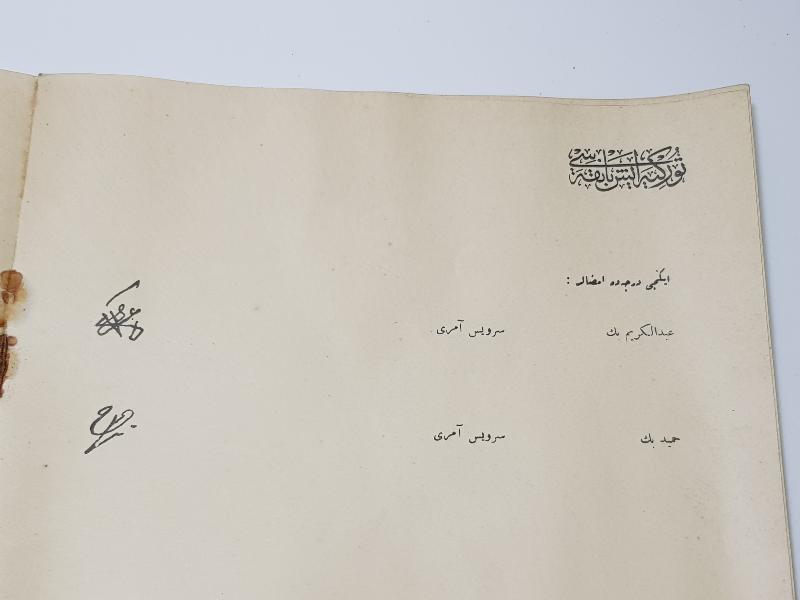 توركيه ايش بانقه سى
ايكنجى درجه ده امضالر :
عبدالكريم بك سرويس آمرى
حميد بك سرويس آمرى